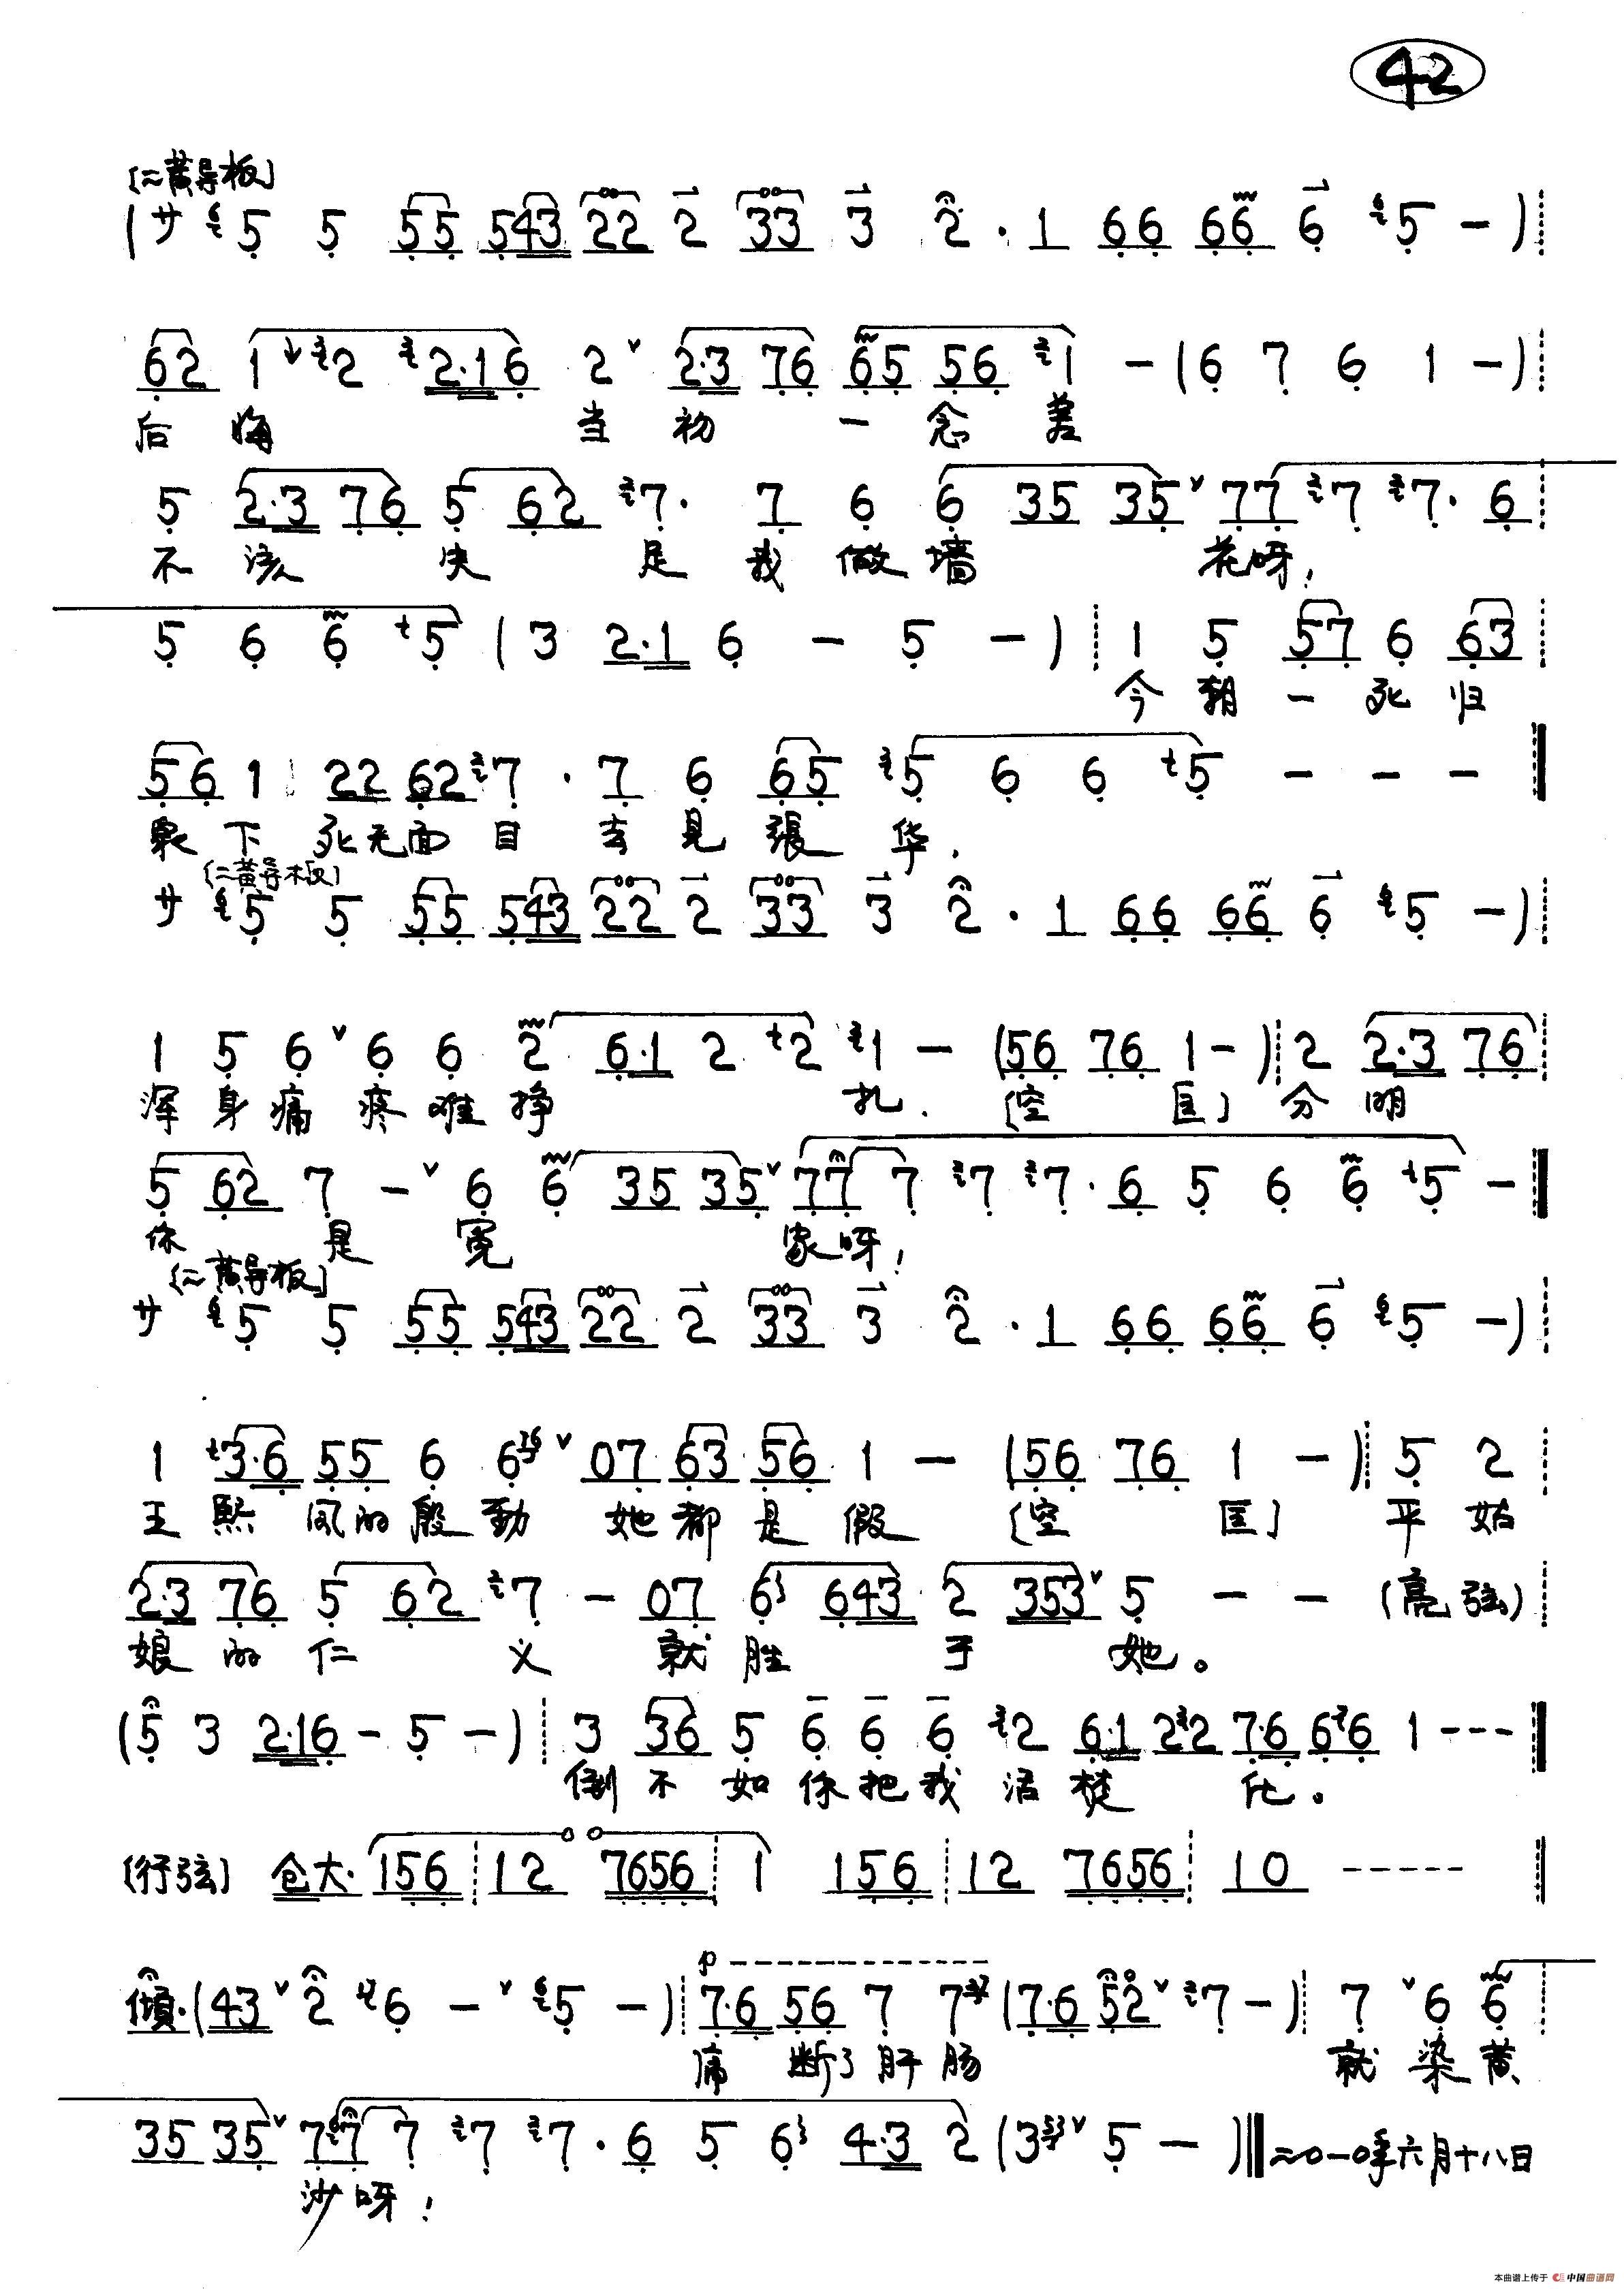 42
〔二黄导板〕
(サ 6 5 5 55 543 22 2 33 3 2 · 1 66 66 6 6 5 - )
62 1 2 2·16 2 2·3 76 65 56 1 - (6 7 6 1 -)
后 悔 当 初 一 念 差
5 2·3 76 5 62 7· 7 6 6 35 35 77 7 7· 6
不 该 决 是 我 做 墙 花呀,
5 6 6 5 (3 2·1 6 - 5 -) 1 5 57 6 63
今 朝 一 死 归
56 1 22 62 7 · 7 6 65 5 6 6 5 - - -
泉 下 死无面 目 去 见 張 华.
〔二黄导板〕
サ 6 5 5 55 543 22 2 33 3 2 · 1 66 66 6 6 5 - )
1 5 6 6 6 2 6·1 2 2 1 - (56 76 1 - ) 2 2·3 76
浑 身 痛 疼 难 挣 扎. 〔空 匡〕 分 明
5 62 7 - 6 6 35 35 77 7 7 7· 6 5 6 6 5 -
你 是 冤 家呀!
〔二黄导板〕
サ 6 5 5 55 543 22 2 33 3 2 · 1 66 66 6 6 5 - )
1 3·6 55 6 6 76 07 63 56 1 - (56 76 1 - ) 5 2
王 熙 凤的殷勤 她都是 假 〔空 匡〕 平 姑
2·3 76 5 62 7 - 07 6 643 2 353 5 - - (亮弦)
娘 的 仁 义 就 胜 于 她。
(5 3 2·16 - 5 -) 3 36 5 6 6 6 2 6·1 22 7·6 66 1 - - -
倒 不 如 你 把 我 活 楚 化。
〔行弦〕 仓大· 156 12 7656 1 156 12 7656 10 - - - - - -
傾·(43 2 6 - 5 -) p - - - 7·6 56 7 7 (7·6 52 7 -) 7 6 6
痛 断了肝 肠 就 染 黄
35 35 77 7 7 7· 6 5 6 4·3 2 (3 5 - ) 二0一0年六月十八日
沙 呀!
本曲谱上传于 中国曲谱网